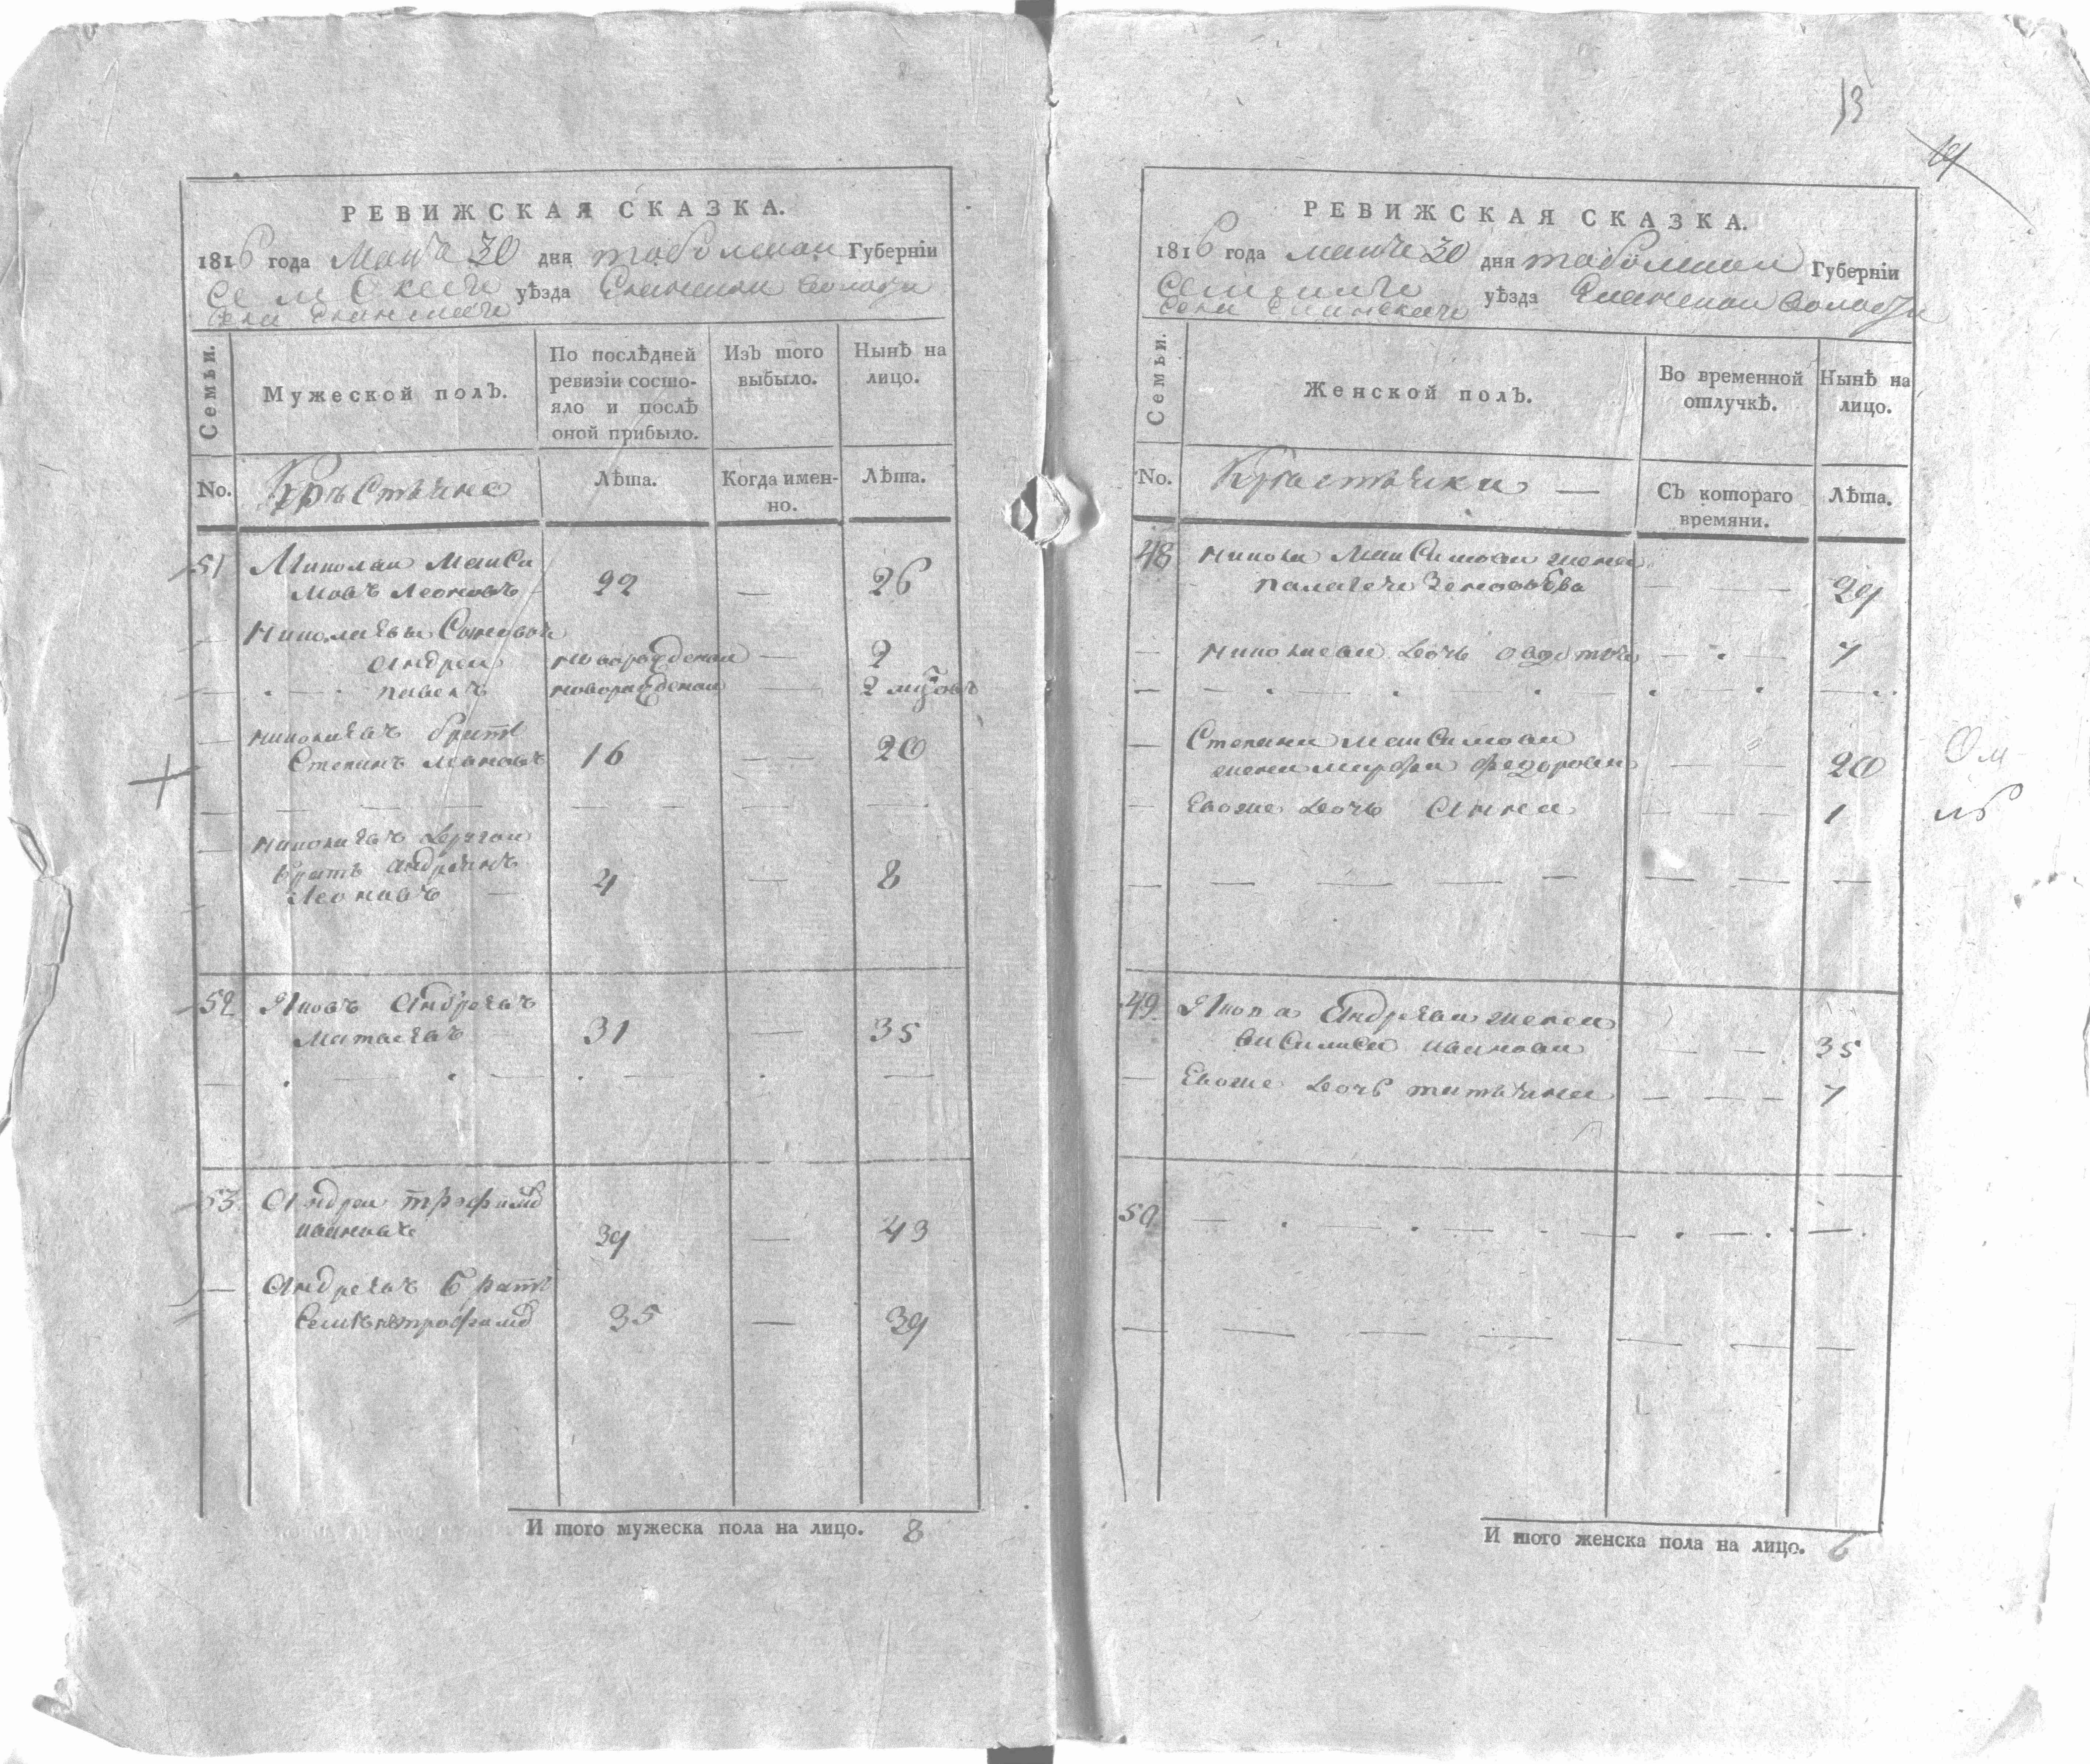 13
РЕВИЖСКАЯ СКАЗКА.
1816 года Маия 30 дня тобольской Губерніи
уѣзда Еланской волости
Села Еланскаго
Семьи.
Мужеской полъ.
По послѣдней ревизіи состояло и послѣ оной прибыло.
Изъ того выбыло.
Нынѣ на лицо.
No.
Крѣстьяне
Лѣта.
Когда именно.
Лѣта.
51 Николаи Макси
мовъ Леоновъ 22 — 26
Николаевы Сыновья
андреи новорожденои — 2
павелъ новорожденои — 2
николаевъ братъ
Степанъ 16 — 20
николаевъ другои
братъ андреянъ
Леоновъ 4 — 8
52 Яковъ Андреевъ
Матвеевъ 31 — 35
53 Андреи трофимо
ивановъ 39 — 43
Андреевъ братъ
трофимо 35 — 39
И того мужеска пола на лицо. 8
РЕВИЖСКАЯ СКАЗКА.
1816 года маия 30 дня тобольской Губерніи
уѣзда Еланской волости
Села Еланскаго
Семьи.
Женской полъ.
Во временной отлучкѣ.
Нынѣ на лицо.
No.
Крестьянки —
Съ котораго времяни.
Лѣта.
48 никола Максимова жена
палагея 29
николаева дочь 7
Степана максимова
жена марфа федорова 20
Евоже дочь Анна 1
49 Якова Андреева жена
василиса иванова 35
Евоже дочь татьяна 7
50
И того женска пола на лицо. 6